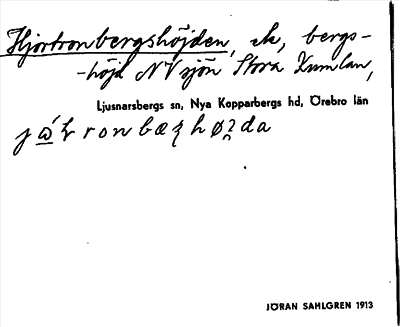 Hjortronbergshöjden, ek, bergs-
-höjd NV sjön Stora Kumlan,
Ljusnarsbergs sn, Nya Kopparbergs hd, Örebro län
JÖRAN SAHLGREN 1913